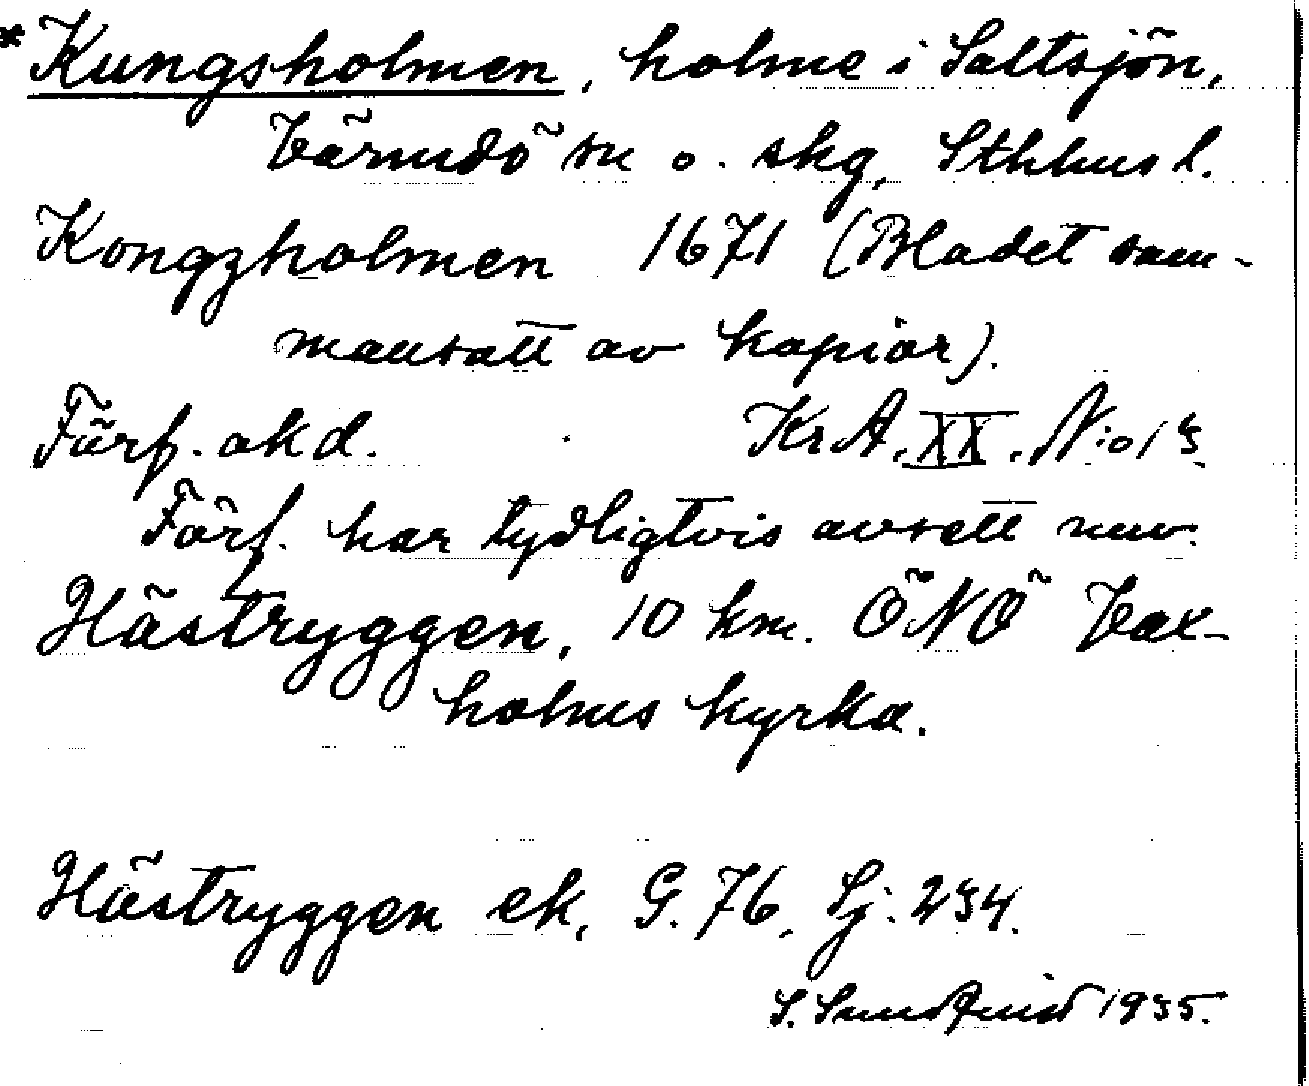 *Kungsholmen, holme i Saltsjön,
Värmdö sn o. skg, Sthlms l.
Kongzholmen 1671 (Bladet sam-
mansatt av kopior).
Förf. okd. KrA. XX. N:o 13
Förf. har tydligtvis avsett nuv.
Hästryggen, 10 km. ÖNÖ Vax-
holms kyrka.
Hästryggen ek, G. 76, Sj. 234.
S. Sundqvist 1935.